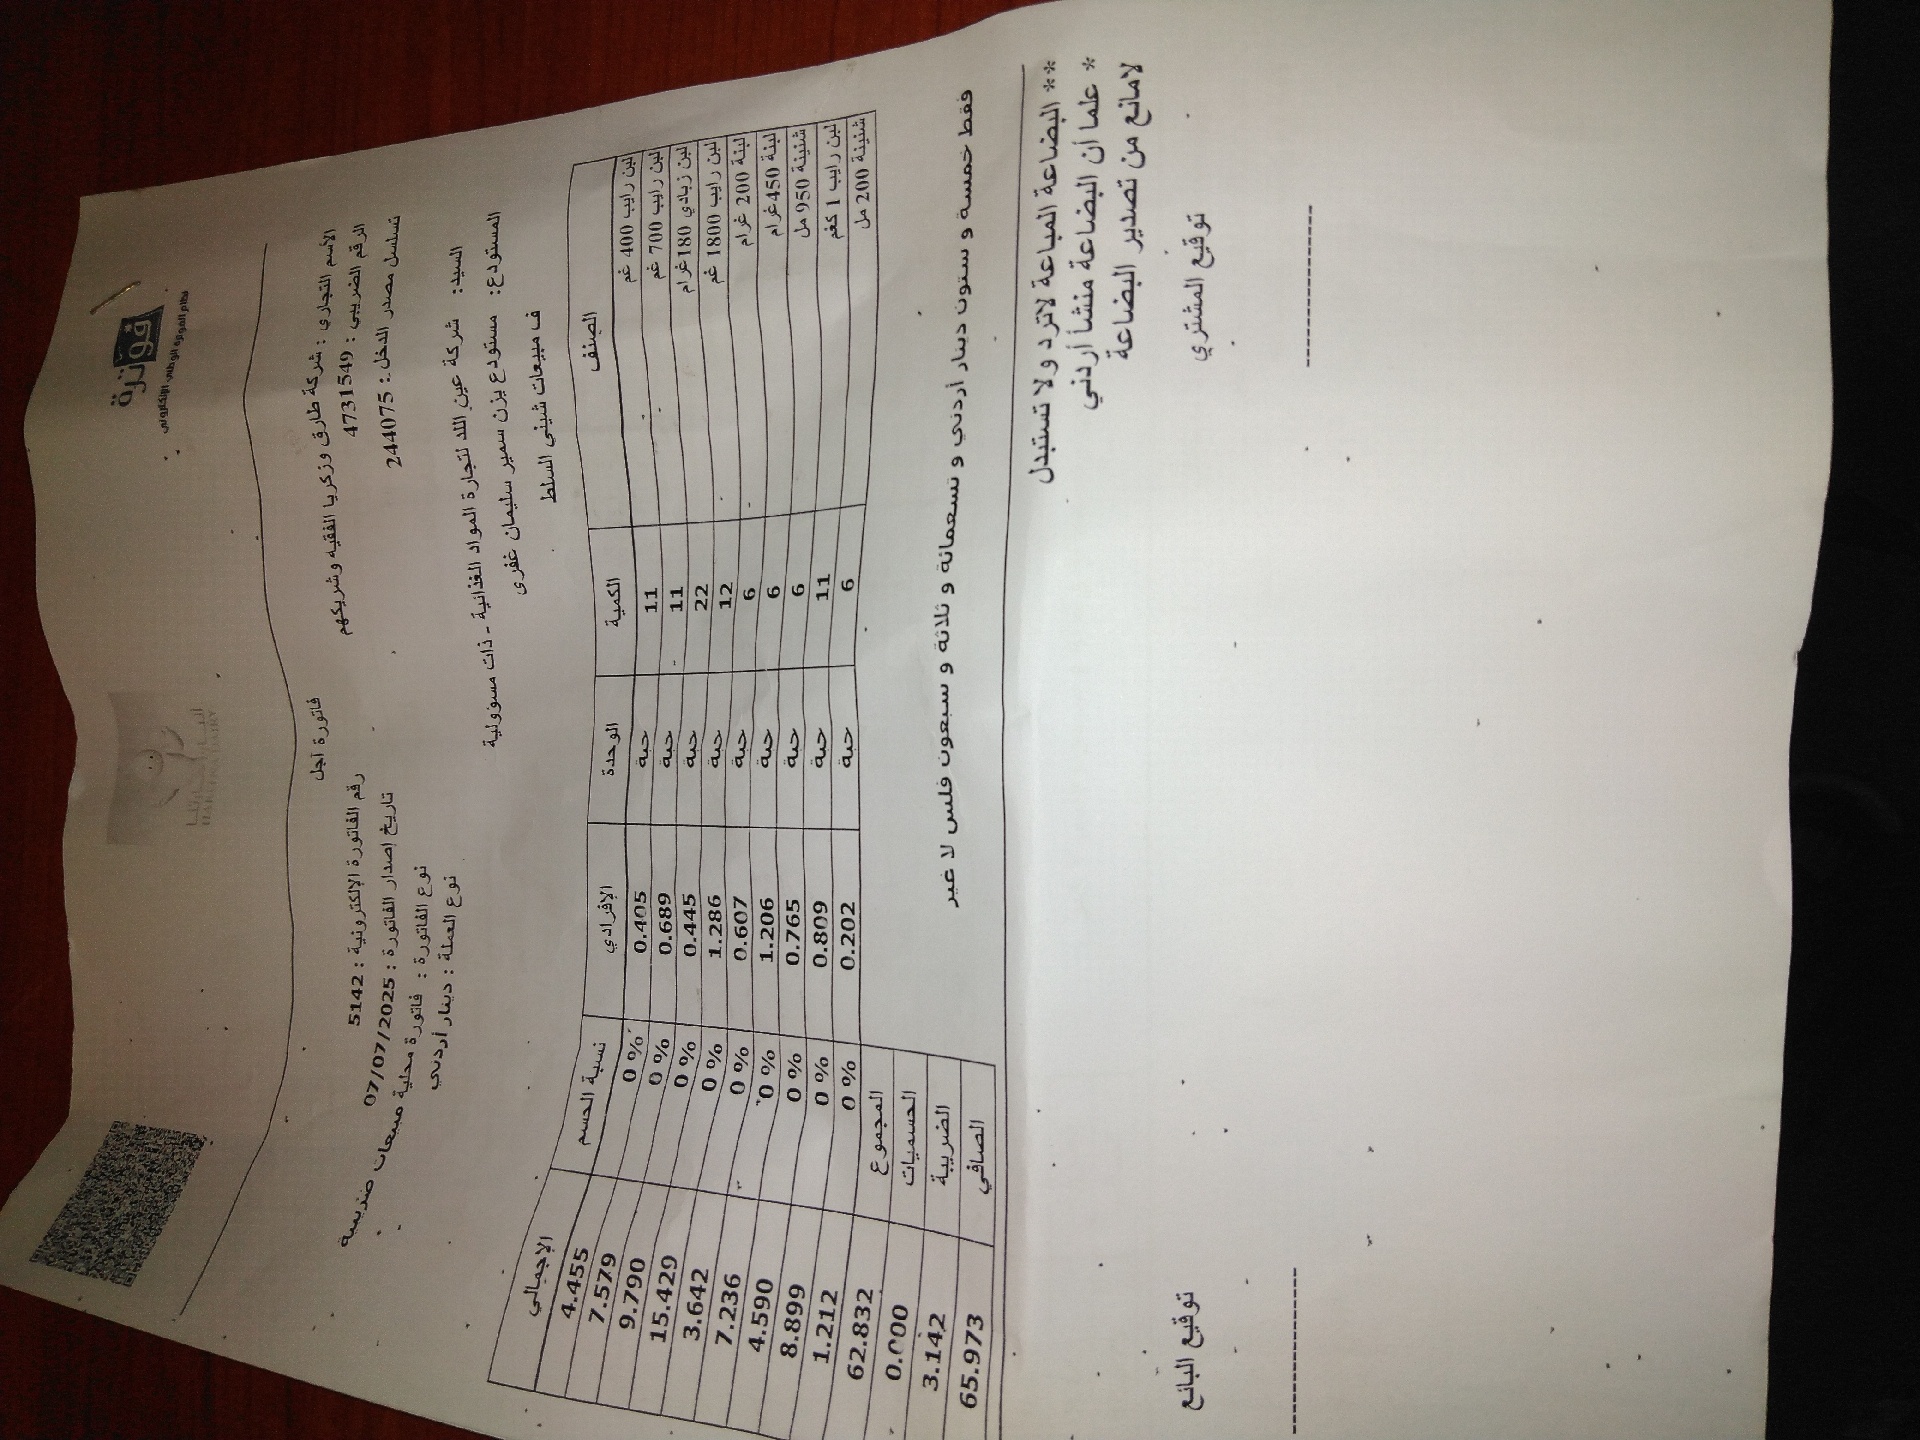 فوترة
نظام الفوترة الوطني الإلكتروني
فاتورة آجل
الأسم التجاري : شركة طارق وزكريا الفقيه وشريكهم
الرقم الضريبي : 4731549
تسلسل مصدر الدخل : 244075
رقم الفاتورة الإلكترونية : 5142
تاريخ إصدار الفاتورة : 07/07/2025
نوع الفاتورة : فاتورة محلية مبيعات ضريبية
نوع العملة : دينار أردني
السيد: شركة عين اللد لتجارة المواد الغذائية - ذات مسؤولية
المستودع: مستودع يزن سمير سليمان غفري
ف مبيعات شيني السلط
الصنف الكمية الوحدة الإفرادي نسبة الحسم الإجمالي
لبن رايب 400 غم 11 حبة 0.405 0 % 4.455
لبن رايب 700 غم 11 حبة 0.689 0 % 7.579
لبن زبادي 180 غرام 22 حبة 0.445 0 % 9.790
لبن رايب 1800 غم 12 حبة 1.286 0 % 15.429
لبنة 200 غرام 6 حبة 0.607 0 % 3.642
لبنة 450 غرام 6 حبة 1.206 0 % 7.236
شنينة 950 مل 6 حبة 0.765 0 % 4.590
لبن رايب 1 كغم 11 حبة 0.809 0 % 8.899
شنينة 200 مل 6 حبة 0.202 0 % 1.212
المجموع 62.832
الحسميات 0.000
الضريبة 3.142
الصافي 65.973
فقط خمسة و ستون دينار أردني و تسعمائة و ثلاثة و سبعون فلس لا غير
** البضاعة المباعة لاترد ولا تستبدل
* علما أن البضاعة منشأ أردني
لامانع من تصدير البضاعة
توقيع المشتري توقيع البائع